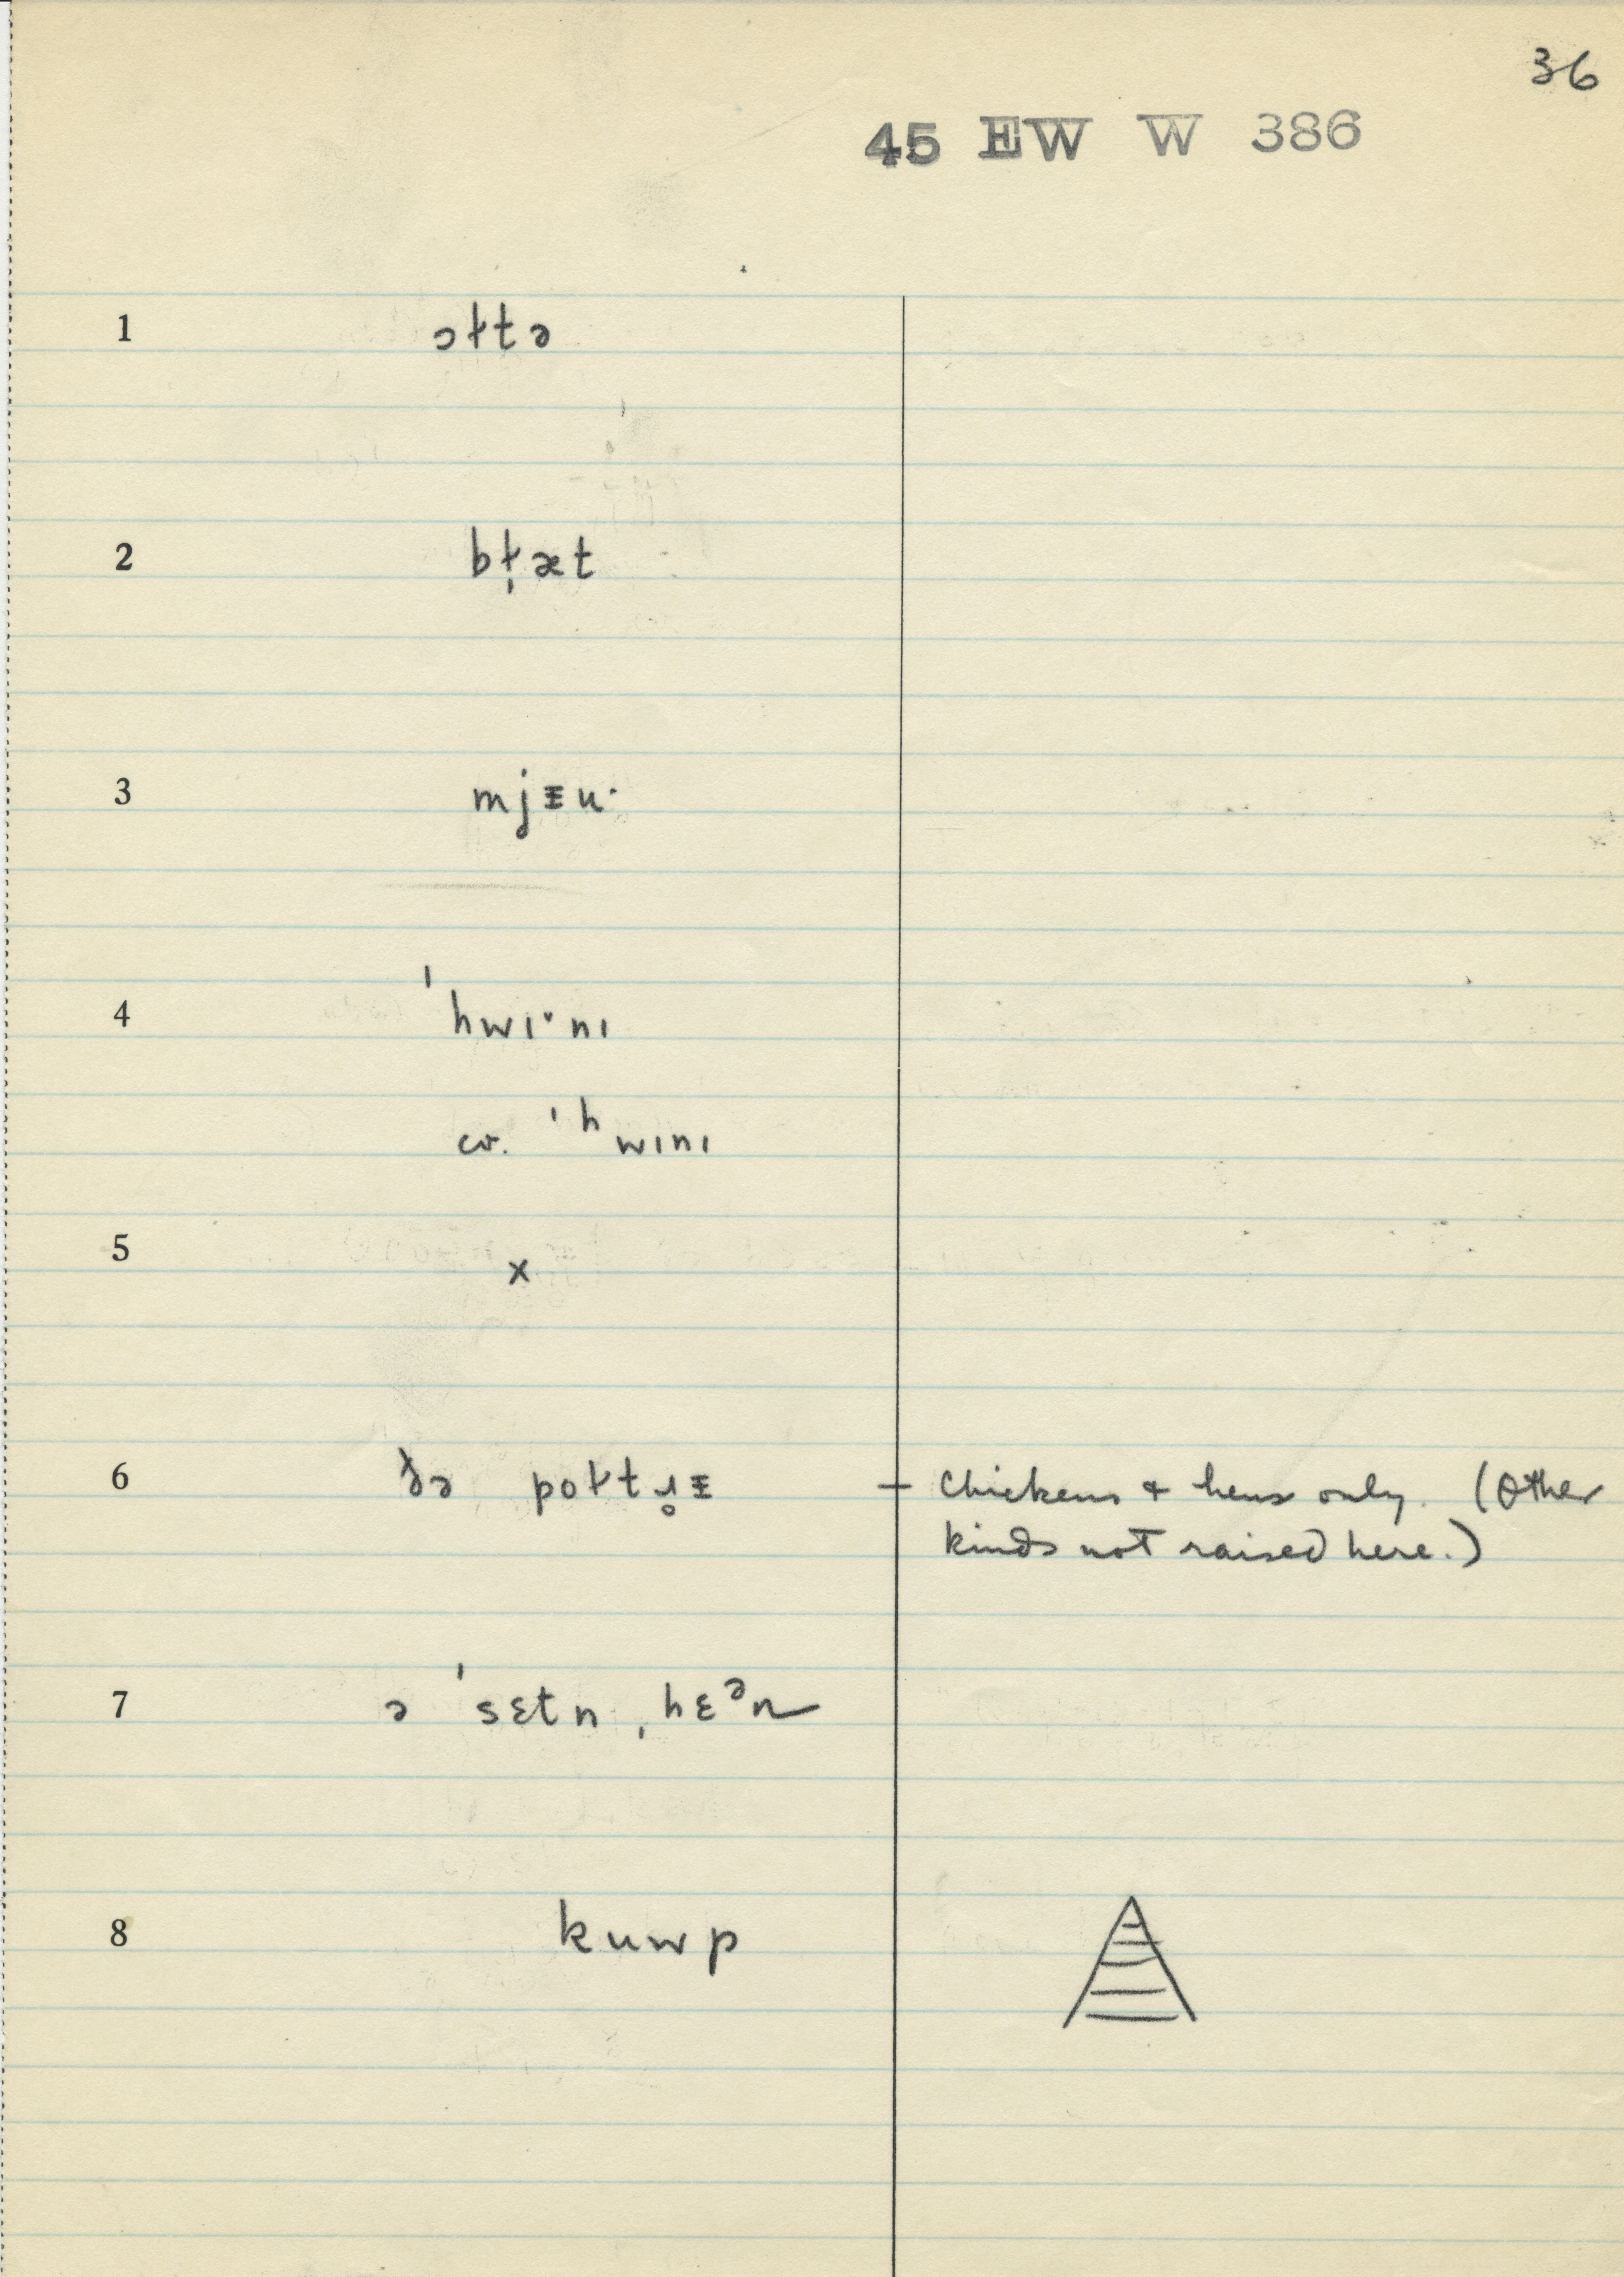 36
45 EW W 386
1 ɔɫtə
2 bɫ̩æt
3 mjᵻu·
4 ˈhwɪ·nɪ
cv. ˈʰwɪnɪ
5 x
6 ðə poɫtɹ̥ᵻ — chickens & hens only. (Other
kinds not raised here.)
7 ə ˈsɛtn ˌhɛᵊn
8 kuwp